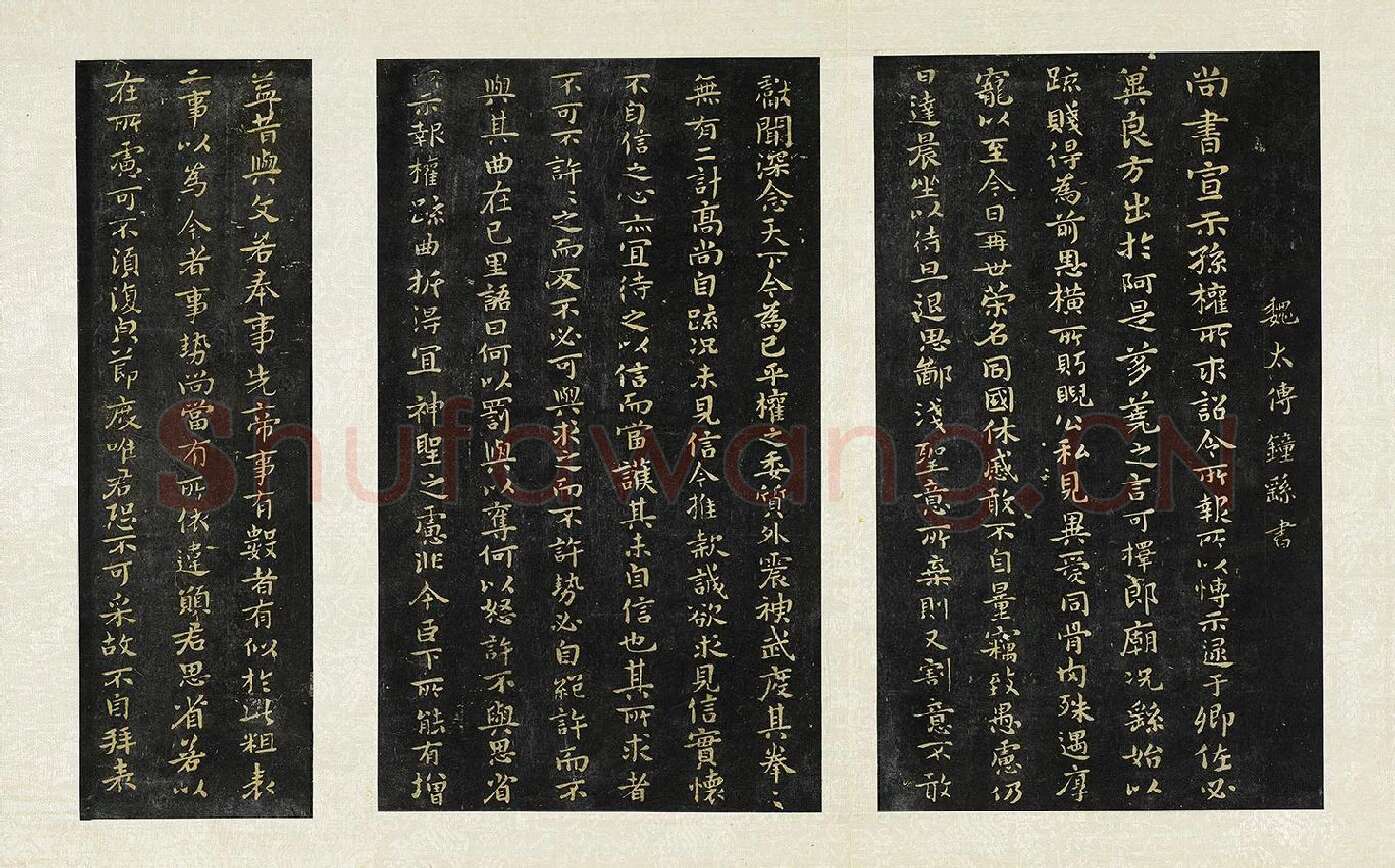 魏太傅鍾繇書
尚書宣示孫權所求詔令所報所以博示逮于卿佐必
冀良方出於阿是芻蕘之言可擇郎廟況繇始以
疏賤得為前恩橫所眄睨公私見異愛同骨肉殊遇厚
寵以至今日再世榮名同國休慼敢不自量竊致愚慮仍
日達晨坐以待旦退思鄙淺聖意所棄則又割意不敢
獻聞深念天下今為已平權之委質外震神武度其拳〻
無有二計高尚自疏況未見信今推款誠欲求見信實懷
不自信之心亦宜待之以信而當護其未自信也其所求者
不可不許〻之而反不必可與求之而不許勢必自絕許而不
與其曲在己里語曰何以罰與以奪何以怒許不與思省
所示報權疏曲折得宜神聖之慮非今臣下所能有增
益昔與文若奉事先帝事有數者有似於此粗表
二事以為今者事勢尚當有所依違願君思省若以
在所慮可不須復貞節度唯君恐不可采故不自拜表
Shufawang.CN